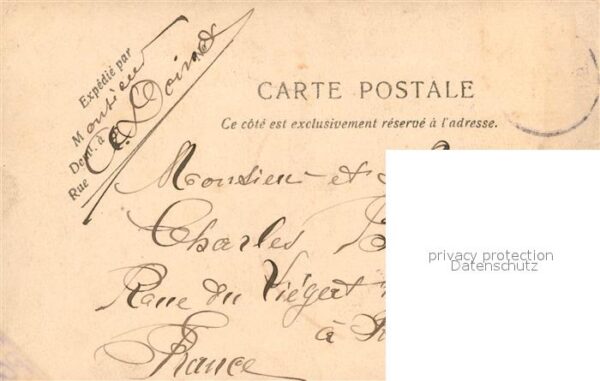 Expédié par
Monsieur
Dem. à
Rue
CARTE POSTALE
Ce côté est exclusivement réservé à l'adresse.
Monsieur et
Charles B
Rue du
à
France
privacy protection
Datenschutz